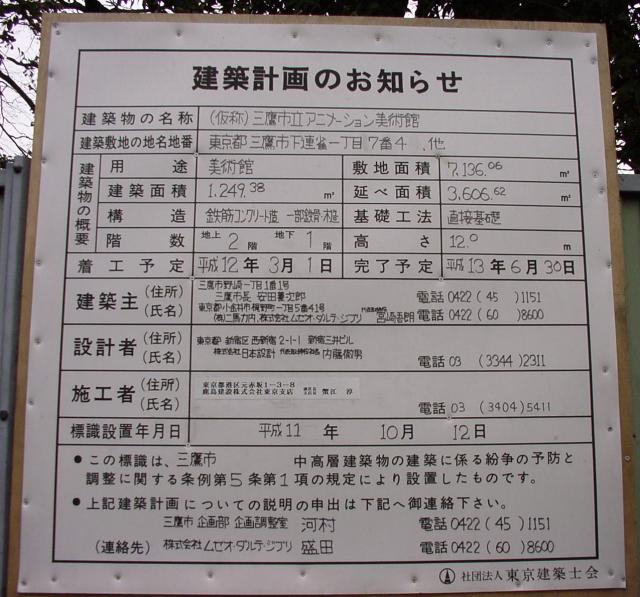 建築計画のお知らせ
建築物の名称 (仮称)三鷹市立アニメーション美術館
建築敷地の地名地番 東京都三鷹市下連雀一丁目7番4、他
建築物の概要
用途 美術館 敷地面積 7,136.06 ㎡
建築面積 1,249.38 ㎡ 延べ面積 3,606.62 ㎡
構造 鉄筋コンクリート造 一部鉄骨・木造 基礎工法 直接基礎
階数 地上 2 階 地下 1 階 高さ 12.0 m
着工予定 平成12年3月1日 完了予定 平成13年6月30日
建築主 (住所) (氏名)
三鷹市野崎一丁目1番1号
三鷹市長 安田養次郎 電話0422(45)1151
東京都小金井市梶野町一丁目5番41号
(有)二馬力内、株式会社ムゼオ・ダルテ・ジブリ 代表取締役 宮崎吾朗 電話0422(60)8600
設計者 (住所) (氏名)
東京都新宿区西新宿2-1-1 新宿三井ビル
株式会社日本設計 代表取締役社長 内藤徹男 電話03(3344)2311
施工者 (住所) (氏名)
東京都港区元赤坂1-3-8
鹿島建設株式会社東京支店 蟹江 淳
電話03(3404)5411
標識設置年月日 平成11年10月12日
●この標識は、三鷹市 中高層建築物の建築に係る紛争の予防と
調整に関する条例第5条第1項の規定により設置したものです。
●上記建築計画についての説明の申出は下記へ御連絡下さい。
三鷹市 企画部 企画調整室 河村 電話0422(45)1151
(連絡先) 株式会社ムゼオ・ダルテ・ジブリ 盛田 電話0422(60)8600
社団法人 東京建築士会